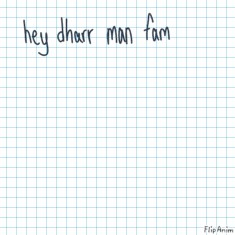 hey dharr man fam
FlipAnim